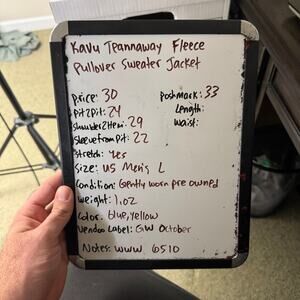 Kavu Teannaway Fleece
Pullover Sweater Jacket
price: 30
Poshmark: 33
pit2Pit: 24
Length:
Shoulder2Hem: 29
waist:
Sleeve from Pit: 22
Stretch: yes
Size: US Men's L
Condition: Gently worn pre owned
weight: 1.02
Color: blue, yellow
Vendoo Label: GW October
Notes: www 6510